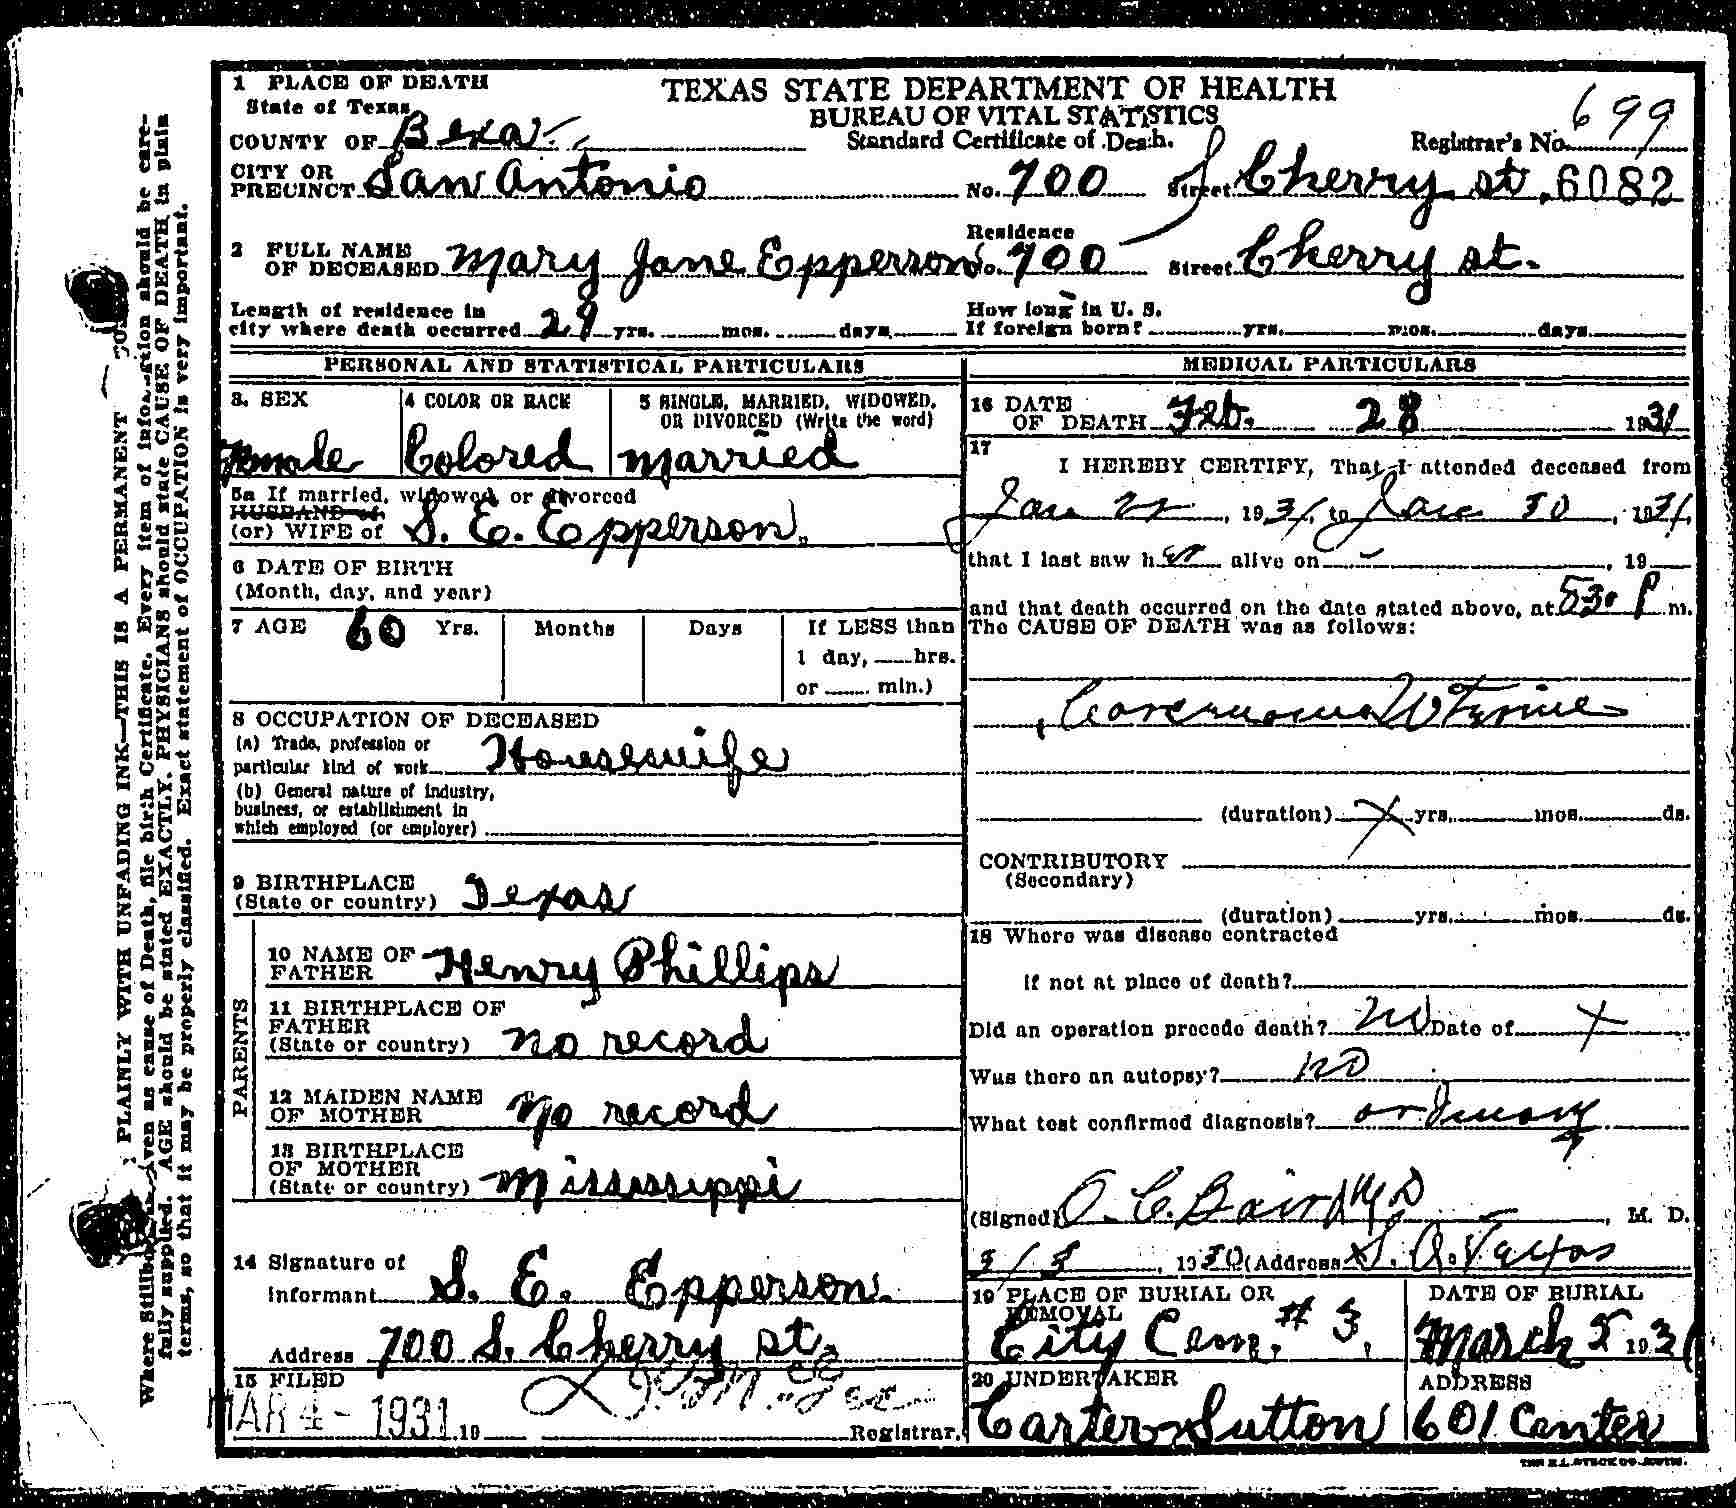 1 PLACE OF DEATH
State of Texas
COUNTY OF Bexar
CITY OR
PRECINCT San Antonio
TEXAS STATE DEPARTMENT OF HEALTH
BUREAU OF VITAL STATISTICS
Standard Certificate of Death.
Registrar's No. 699
No. 700 Street S Cherry st. 6082
2 FULL NAME
OF DECEASED Mary Jane Epperson
Residence
No. 700 Street Cherry st.
Length of residence in
city where death occurred 29 yrs. mos. days.
How long in U. S.
If foreign born? yrs. mos. days
PERSONAL AND STATISTICAL PARTICULARS
3. SEX
Female
4 COLOR OR RACE
Colored
5 SINGLE, MARRIED, WIDOWED,
OR DIVORCED (Write the word)
married
5a If married, widowed or divorced
HUSBAND of
(or) WIFE of S. E. Epperson.
6 DATE OF BIRTH
(Month, day, and year)
7 AGE 60 Yrs. Months Days
If LESS than
1 day, hrs.
or min.)
8 OCCUPATION OF DECEASED
(a) Trade, profession or
particular kind of work Housewife
(b) General nature of industry,
business, or establishment in
which employed (or employer)
9 BIRTHPLACE
(State or country) Texas
PARENTS
10 NAME OF
FATHER Henry Phillips
11 BIRTHPLACE OF
FATHER
(State or country) no record
12 MAIDEN NAME
OF MOTHER no record
13 BIRTHPLACE
OF MOTHER
(State or country) Mississippi
14 Signature of
Informant S. E. Epperson.
Address 700 S. Cherry st.
15 FILED
MAR 4 - 1931 19
Registrar.
MEDICAL PARTICULARS
16 DATE
OF DEATH Feb. 28 1931
17
I HEREBY CERTIFY, That I attended deceased from
Jan 22, 1931, to Jan 30, 1931,
that I last saw her alive on - , 19
and that death occurred on the date stated above, at 530 P m.
The CAUSE OF DEATH was as follows:
Carcenoma Uterine
(duration) X yrs. mos. ds.
CONTRIBUTORY
(Secondary)
(duration) yrs. mos. ds.
18 Where was disease contracted
if not at place of death?
Did an operation precede death? no Date of X
Was there an autopsy? no
What test confirmed diagnosis? ordinary
(Signed) O. C. Baird MD, M. D.
3/3, 1930 (Address S. A. Texas
19 PLACE OF BURIAL OR
REMOVAL
City Cem. # 3.
DATE OF BURIAL
March 2 1931
20 UNDERTAKER
Carter Sutton
ADDRESS
601 Center
PLAINLY WITH UNFADING INK—THIS IS A PERMANENT
Where Stillborn given as cause of Death, file birth Certificate. Every item of information should be care-
fully supplied. AGE should be stated EXACTLY. PHYSICIANS should state CAUSE OF DEATH in plain
terms, so that it may be properly classified. Exact statement of OCCUPATION is very important.